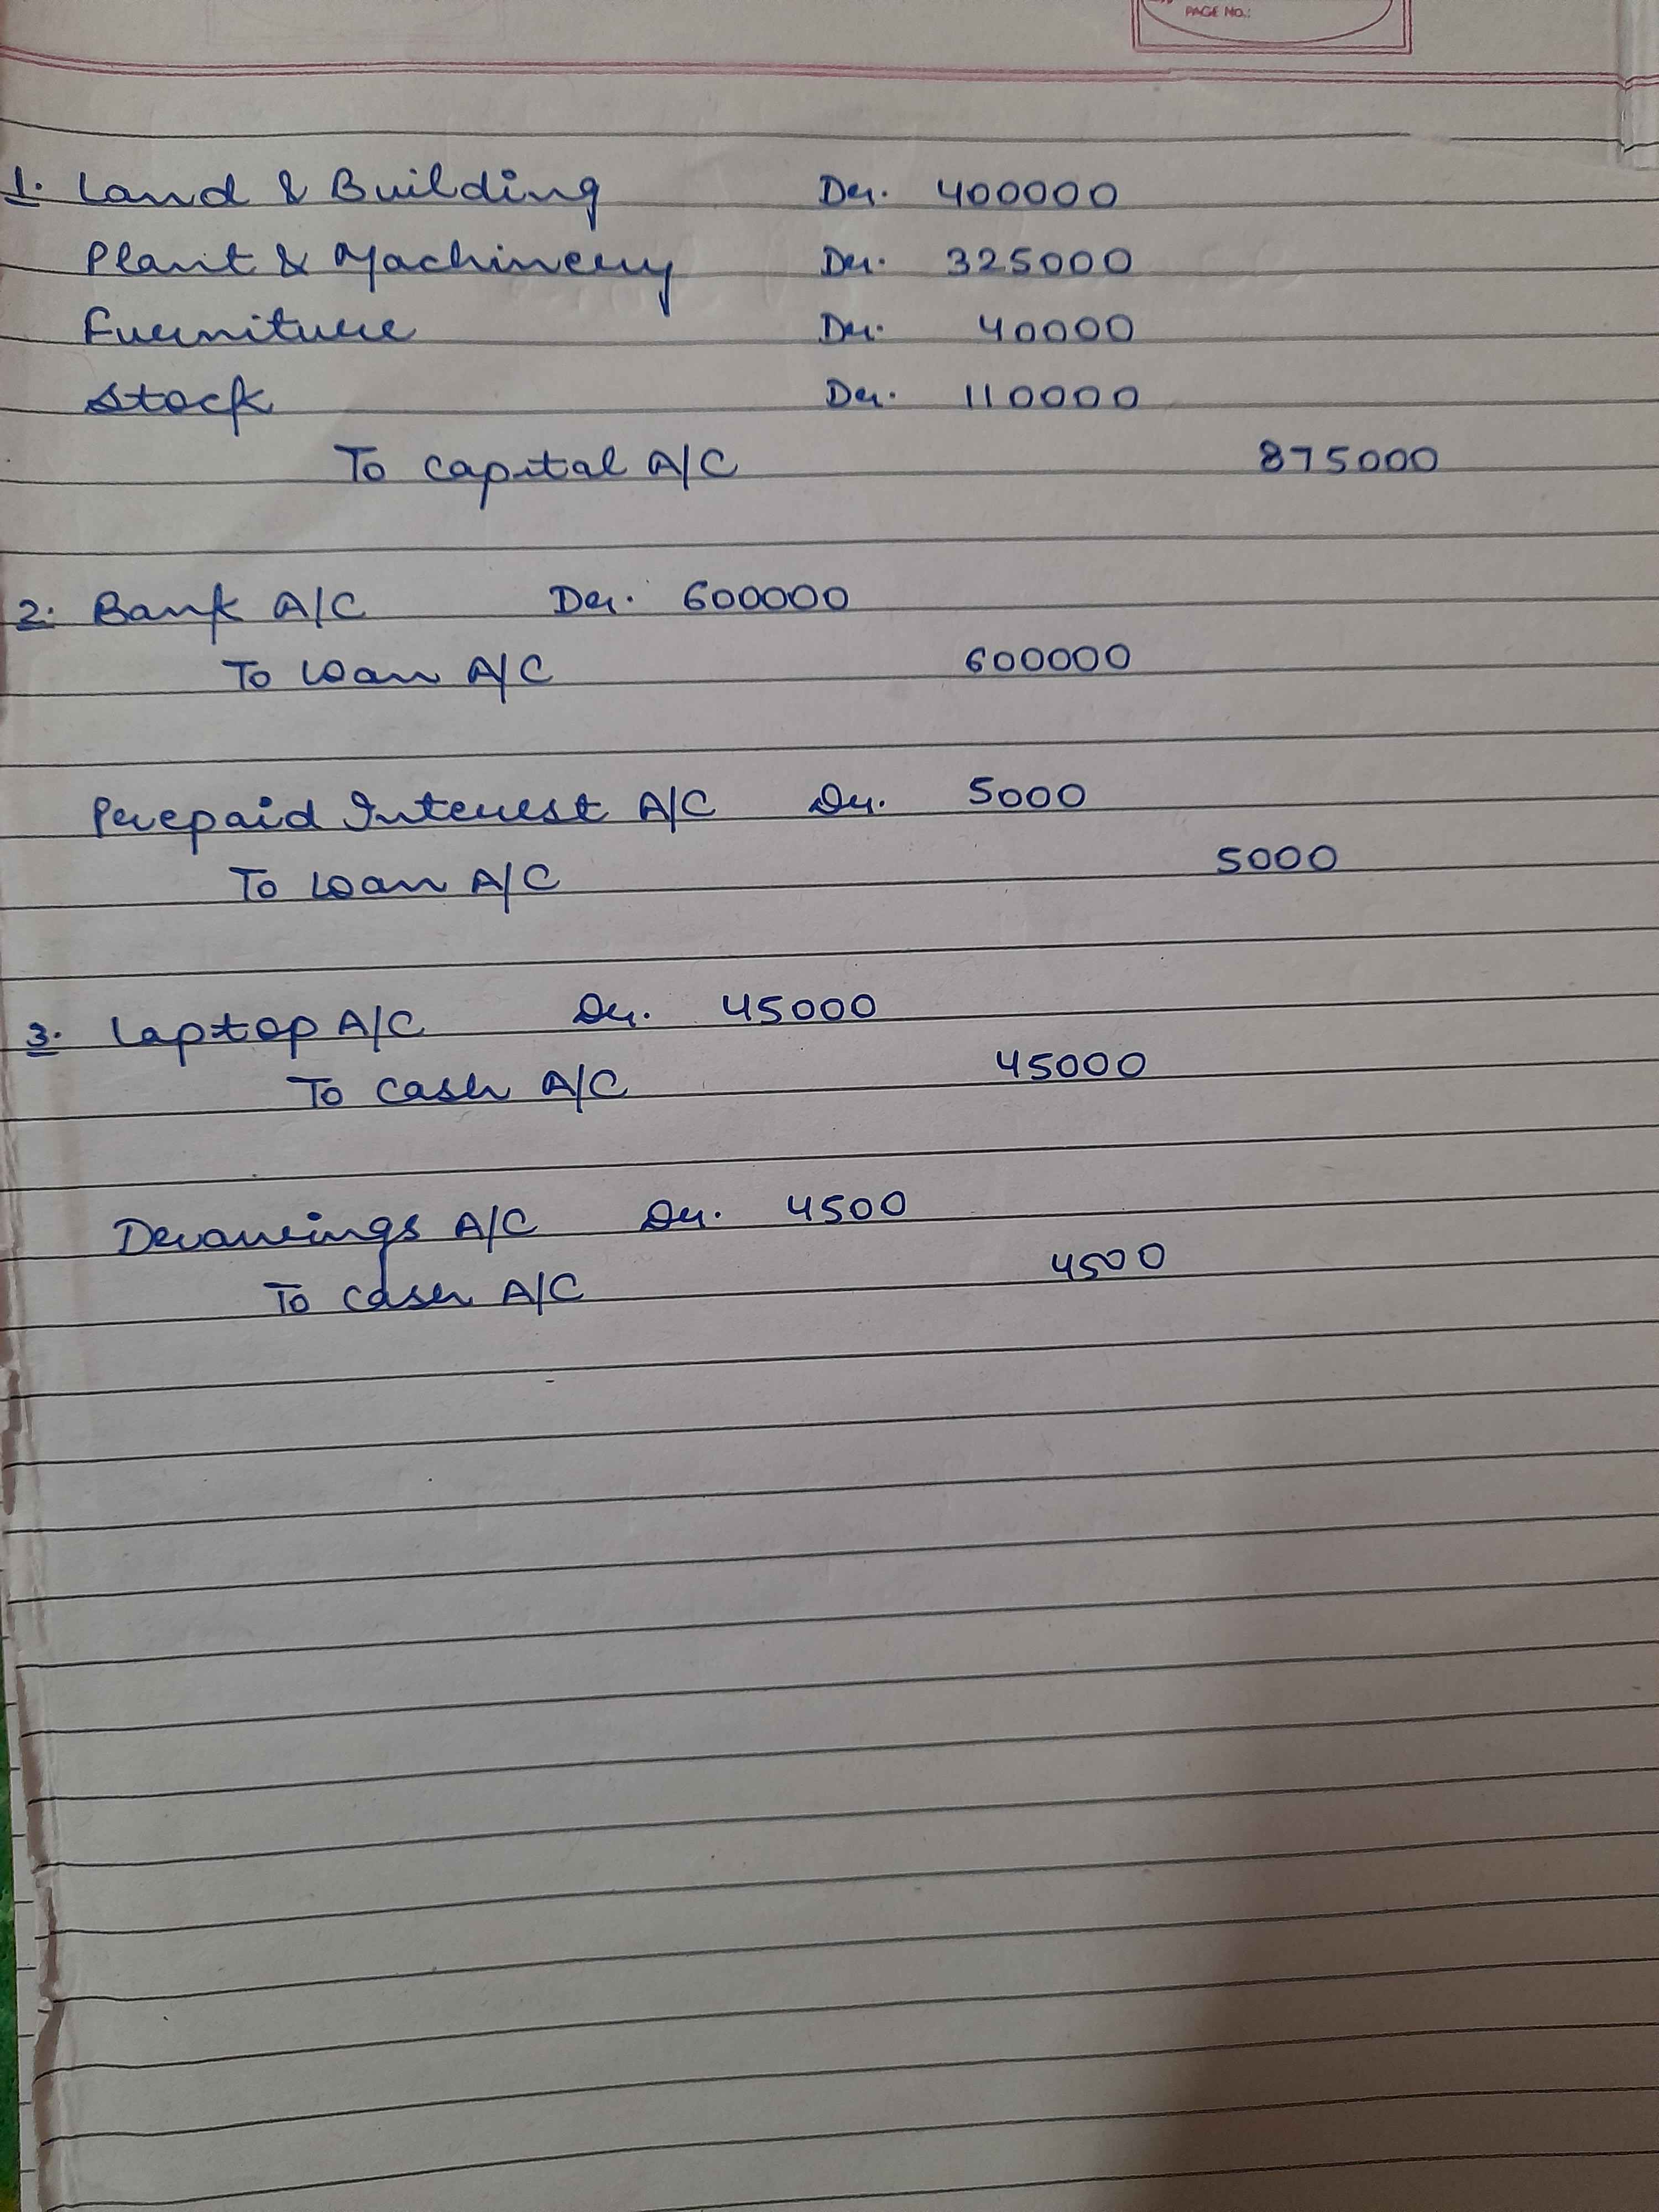 PAGE NO.:
1. Land & Building Dr. 400000
Plant & Machinery Dr. 325000
Furniture Dr. 40000
Stock Dr. 110000
To Capital A/C 875000
2. Bank A/C Dr. 600000
To Loan A/C 600000
Prepaid Interest A/C Dr. 5000
To Loan A/C 5000
3. Laptop A/C Dr. 45000
To Cash A/C 45000
Drawings A/C Dr. 4500
To Cash A/C 4500